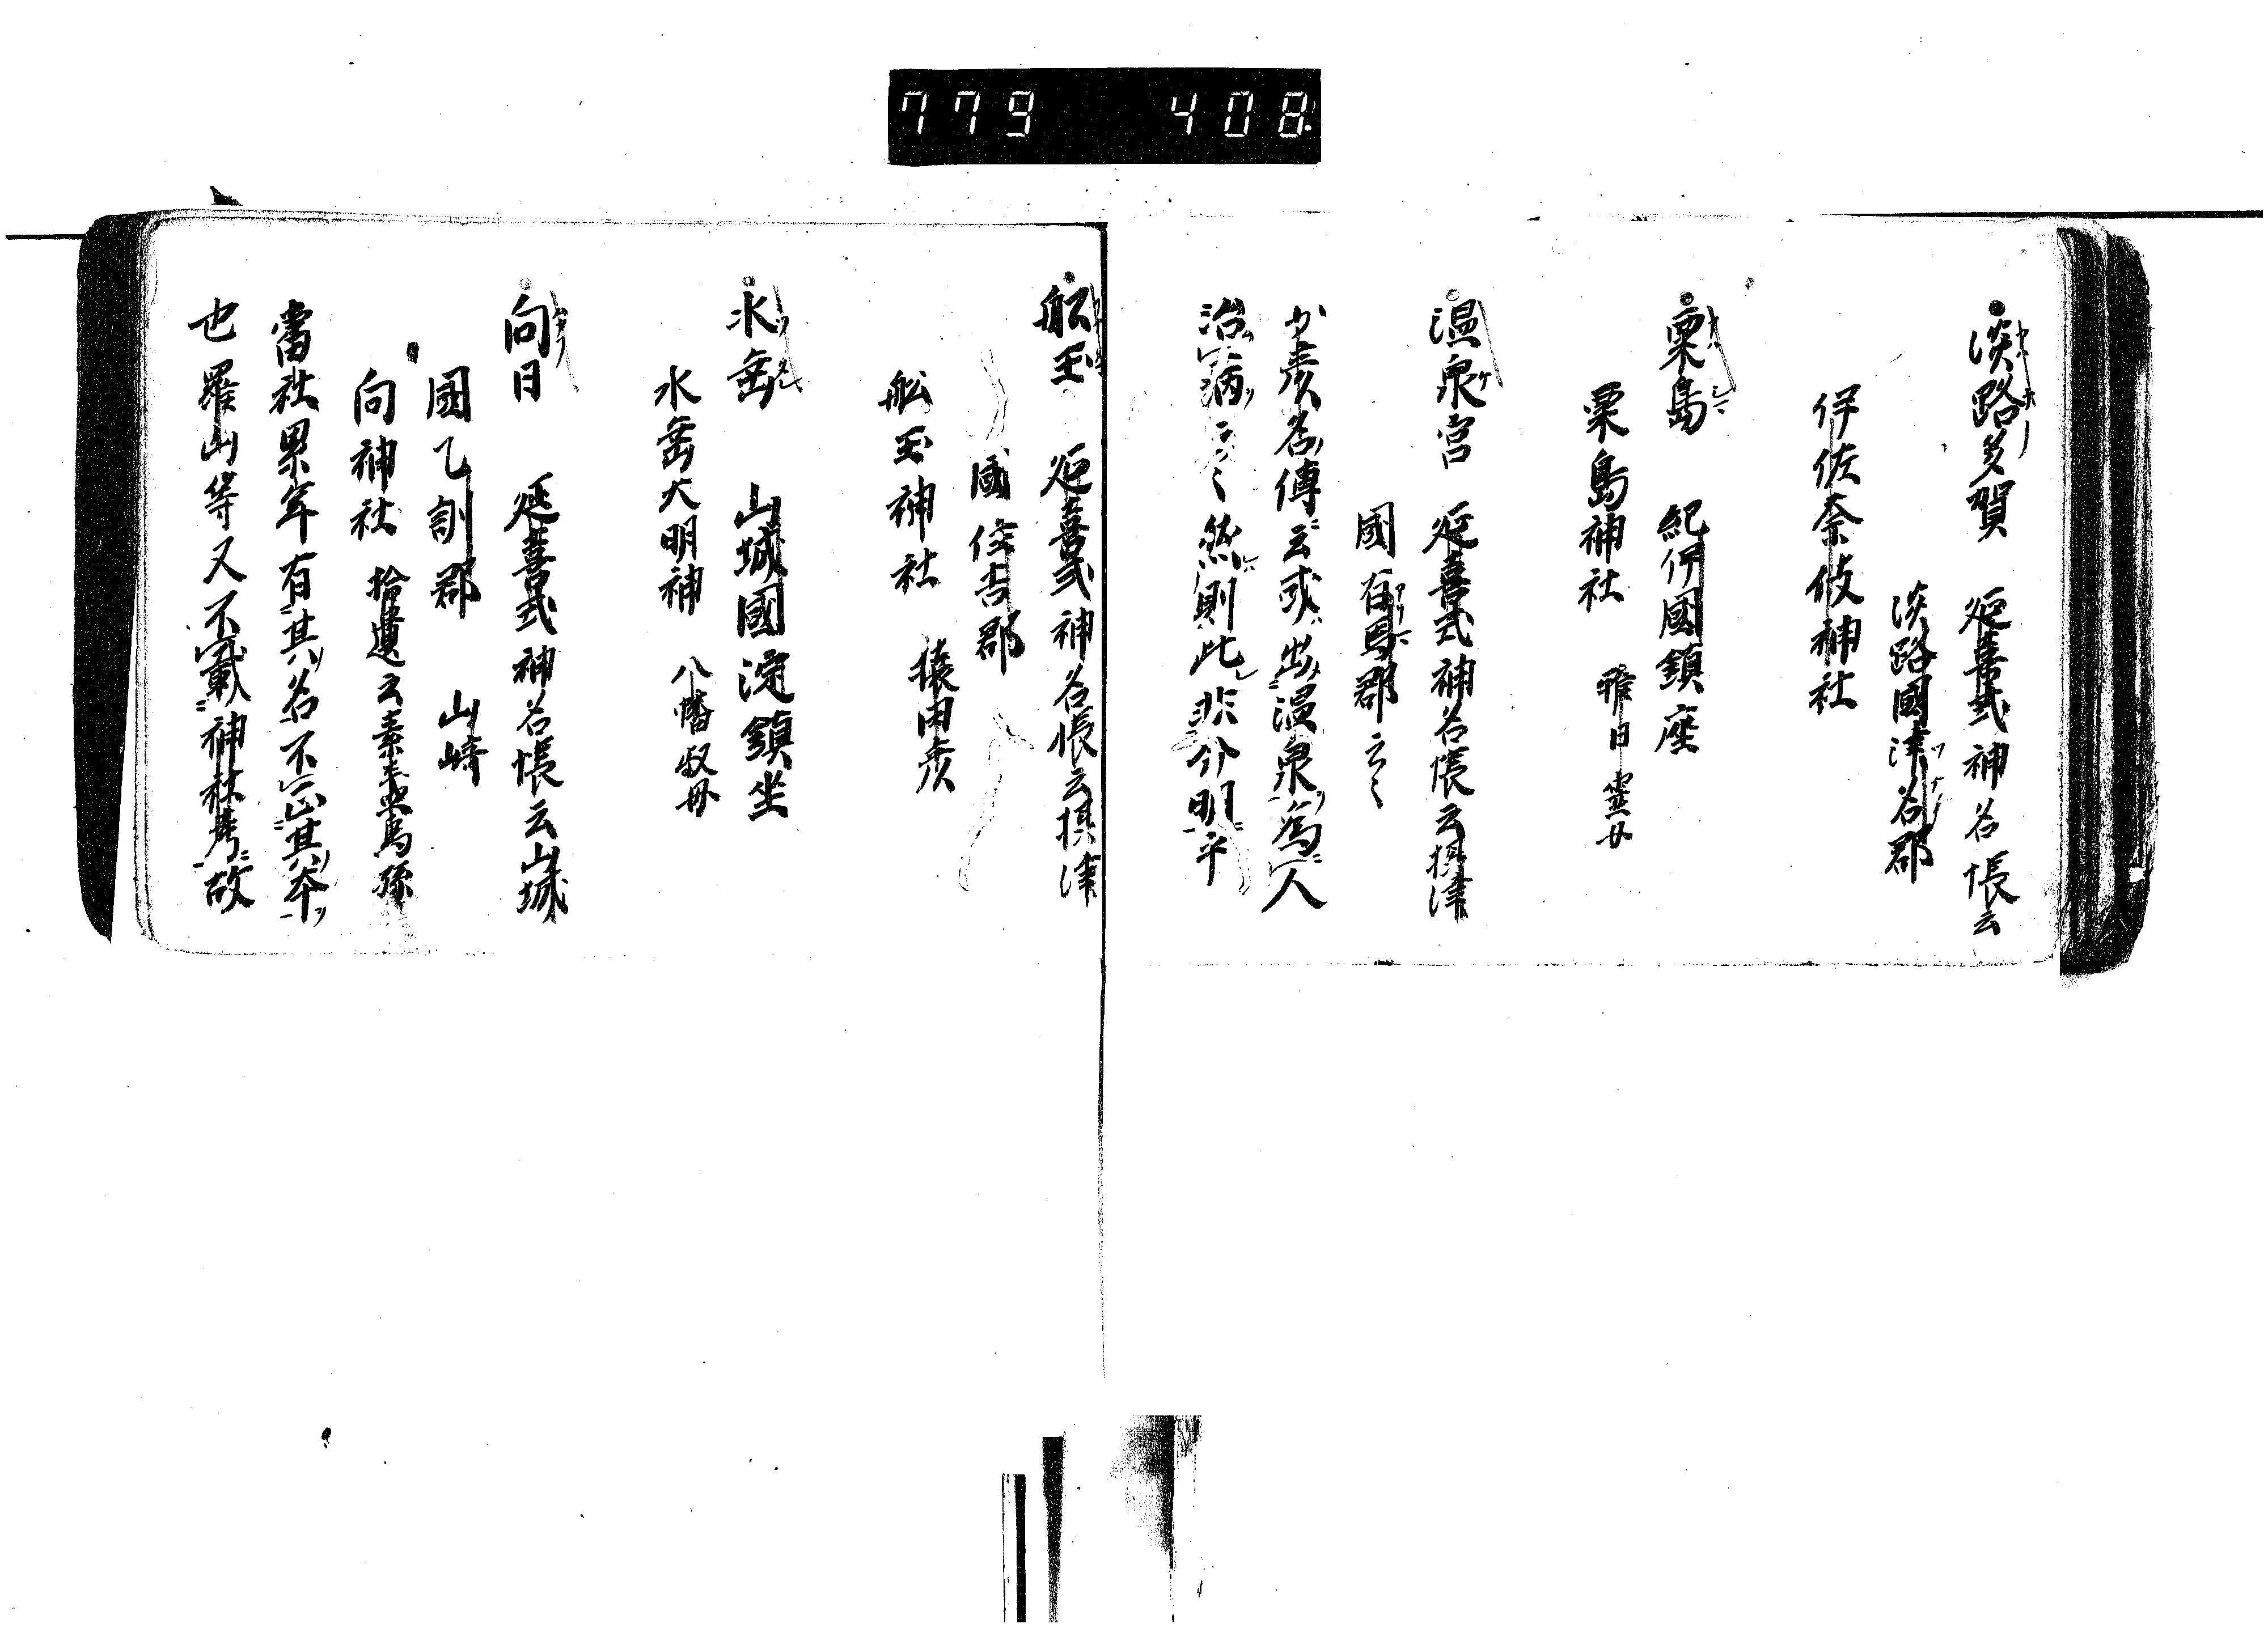 779 408
淡路多賀 延喜式神名帳云
淡路國津名郡
伊佐奈伎神社
粟島 紀伊國鎮座
粟島神社
温泉宮 延喜式神名帳云摂津
國有馬郡云〻
少彦名傳云或出温泉為人
治病云〻然則此非分明乎
舩玉 延喜式神名帳云摂津
國住吉郡
舩玉神社 猿田彦
水垂 山城國淀鎮坐
水垂大明神 八幡叔母
向日 延喜式神名帳云山城
國乙訓郡 山崎
向神社 拾遺云素戔烏孫
當社累年有其名不正其本
也羅山等又不載神社考故